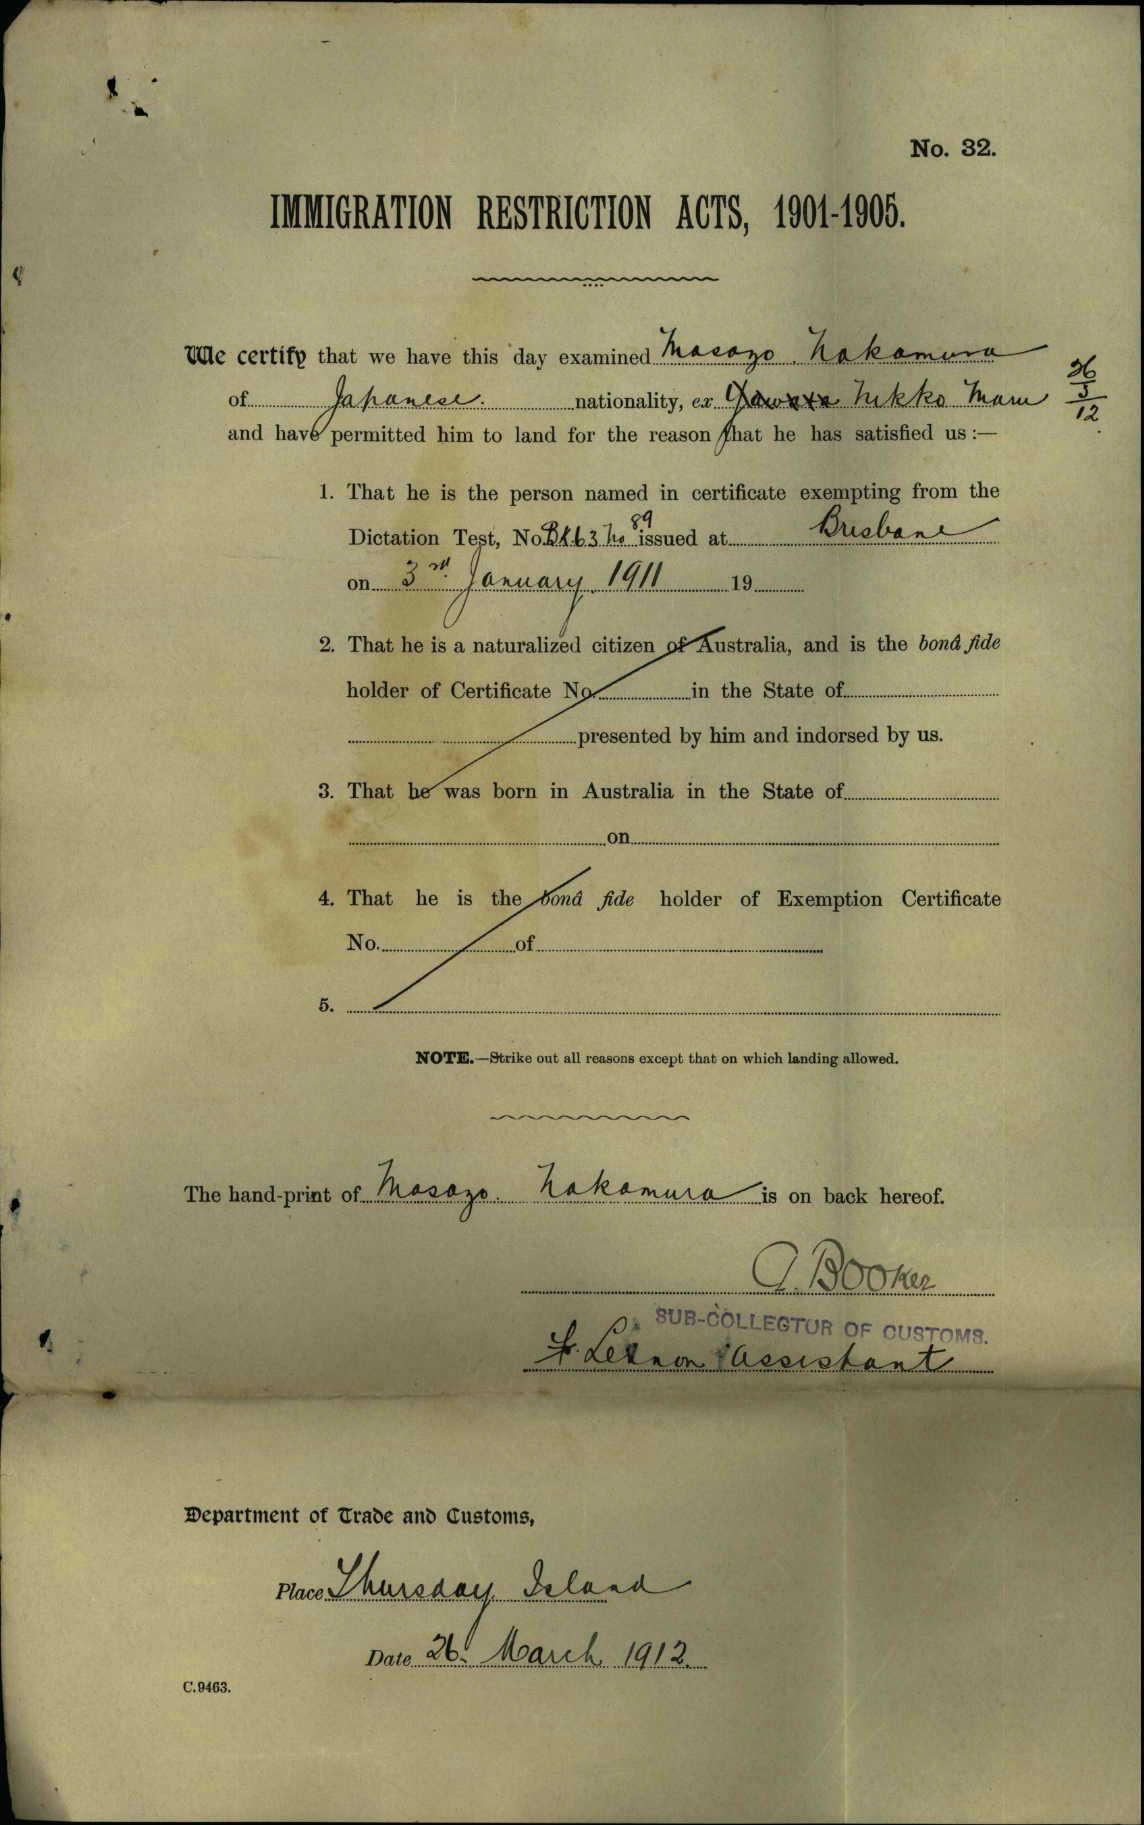 No. 32.
IMMIGRATION RESTRICTION ACTS, 1901-1905.
We certify that we have this day examined Masazo Nakamura
of Japanese. nationality, ex Yawata Nikko Maru
26/3/12
and have permitted him to land for the reason that he has satisfied us :—
1. That he is the person named in certificate exempting from the
Dictation Test, No. Bk 63 No 89 issued at Brisbane
on 3rd January 1911 19
2. That he is a naturalized citizen of Australia, and is the bonâ fide
holder of Certificate No. in the State of
presented by him and indorsed by us.
3. That he was born in Australia in the State of
on
4. That he is the bonâ fide holder of Exemption Certificate
No. of
5.
NOTE.—Strike out all reasons except that on which landing allowed.
The hand-print of Masazo. Nakamura is on back hereof.
G. Booker
SUB-COLLECTOR OF CUSTOMS.
Lennon Assistant
Department of Trade and Customs,
Place Thursday Island
Date 26. March 1912.
C.9463.